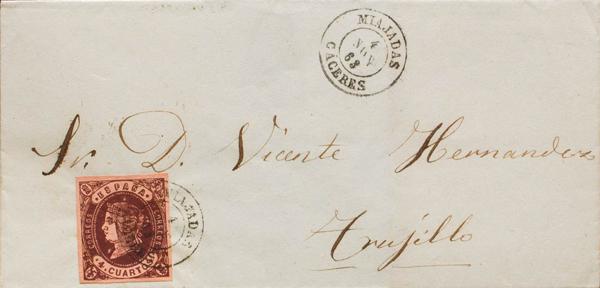 MIAJADAS
4
NOV
63
CÁCERES
Sr. D. Vicente Hernandez
Trujillo
ESPAÑA
CORREOS
4 CUARTOS
MIAJADAS
4